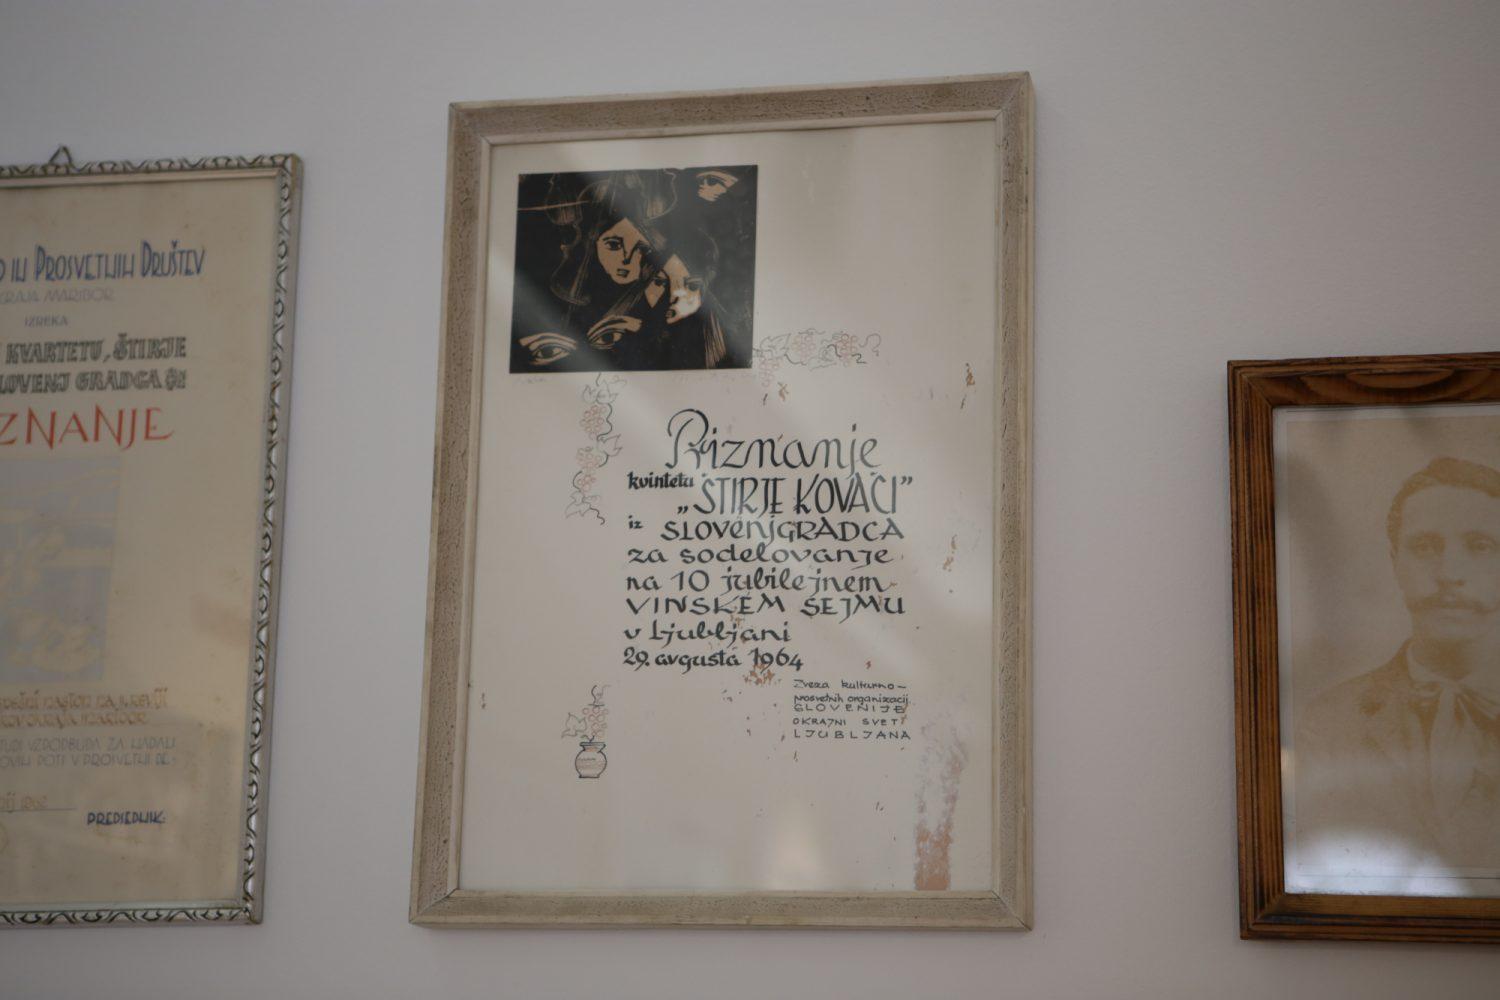 IN PROSVETNIH DRUŠTEV
MARIBOR
IZREKA
KVARTETU, ŠTIRJE
SLOVENJ GRADCA
ZNANJE
TUDI VZPODBUDA ZA
POTI V PROSVETNI DE-
PREDSEDNIK:
Priznanje
kvintetu
„ŠTIRJE KOVAČI”
iz SLOVENJGRADCA
za sodelovanje
na 10 jubilejnem
VINSKEM SEJMU
v Ljubljani
29. avgusta 1964
Zveza kulturno-
prosvetnih organizacij
SLOVENIJE
OKRAJNI SVET
LJUBLJANA